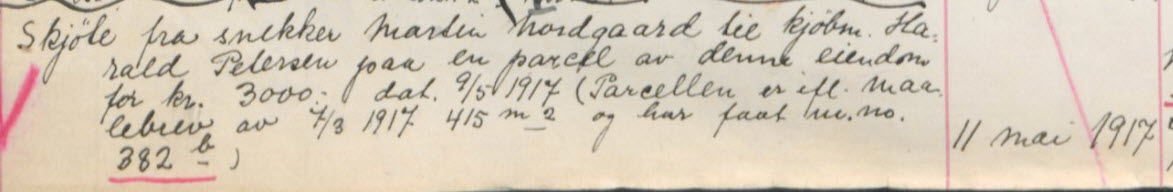 Skjöte fra snekker Martin Nordgaard til kjöbm. Ha-
rald Petersen paa en parcel av denne eiendom
for kr. 3000.- dat. 9/5 1917 (Parcellen er ifl. maa-
lebrev av 7/3 1917 415 m2 og har faat m.no.
382 b)
11 mai 1917